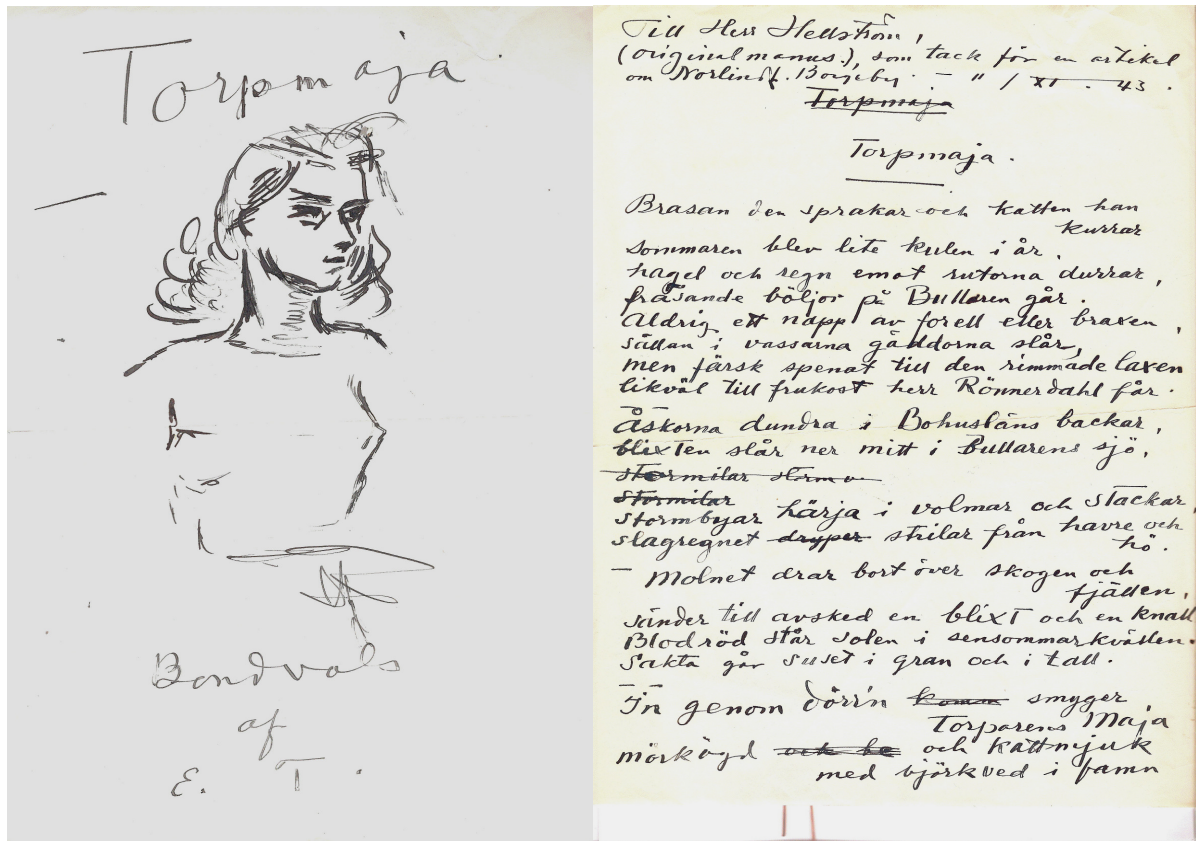 Torpmaja.
Bondvals
af
E. T.
Till Herr Hellström,
(originalmanus.), som tack för en artikel
om Norlind. Borgeby. – " / XI . 43 .
Torpmaja
Torpmaja.
Brasan den sprakar och katten han
kurrar
sommaren blev lite kulen i år,
hagel och regn emot rutorna durrar,
fräsande böljor på Bullaren går.
Aldrig ett napp av forell eller braxen,
sällan i vassarna gäddorna slår,
men färsk spenat till den rimmade laxen
likväl till frukost herr Rönnerdahl får.
Åskorna dundra i Bohusläns backar,
blixten slår ner mitt i Bullarens sjö,
stormilar storm
stormilar
stormbyar härja i volmar och stackar,
slagregnet dryper strilar från havre och
hö.
– Molnet drar bort över skogen och
fjällen,
sänder till avsked en blixt och en knall
Blodröd står solen i sensommarkvällen.
Sakta går suset i gran och i tall.
In genom dörr'n komm smyger
Torparens Maja
mörkögd och be och kattmjuk
med björkved i famn